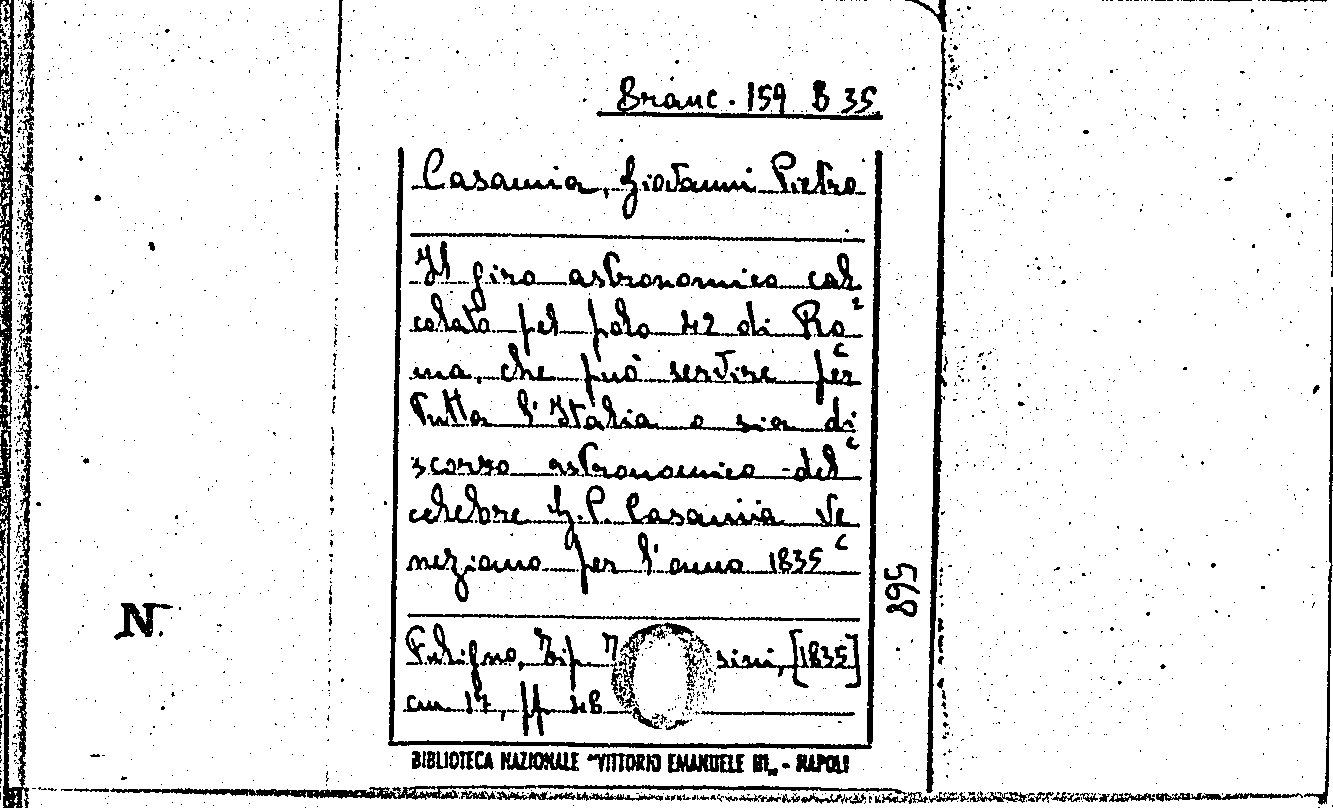 Branc. 159 B 35
Casamia, Giovanni Pietro
Il giro astronomico cal
colato pel polo 42 di Ro=
ma, che può servire per
tutta l'Italia o sia di
scorso astronomico del
celebre G. P. Casamia Ve
neziano per l'anno 1835
568
N.
Fuligno, Tip. sini, [1835]
cm 17, pp 48
BIBLIOTECA NAZIONALE "VITTORIO EMANUELE III„ - NAPOLI